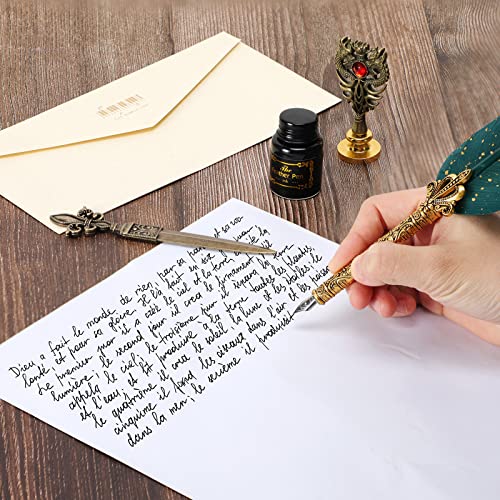 The
Feather Pen
Ink
Dieu a fait le monde de rien, par sa parole et sa
bonté, et pour sa gloire. Il l'a fait en six
Le premier jour il a créé le ciel et la terre, la
lumière; le second jour il créa le firmament
appelé le ciel; le troisième, sur la terre
et l'eau, et fit produire à la terre toutes les plantes;
le quatrième il créa le soleil, la lune et les étoiles; le
cinquième il fond les oiseaux dans l'air et les poissons
dans la mer; le sixième il produisit